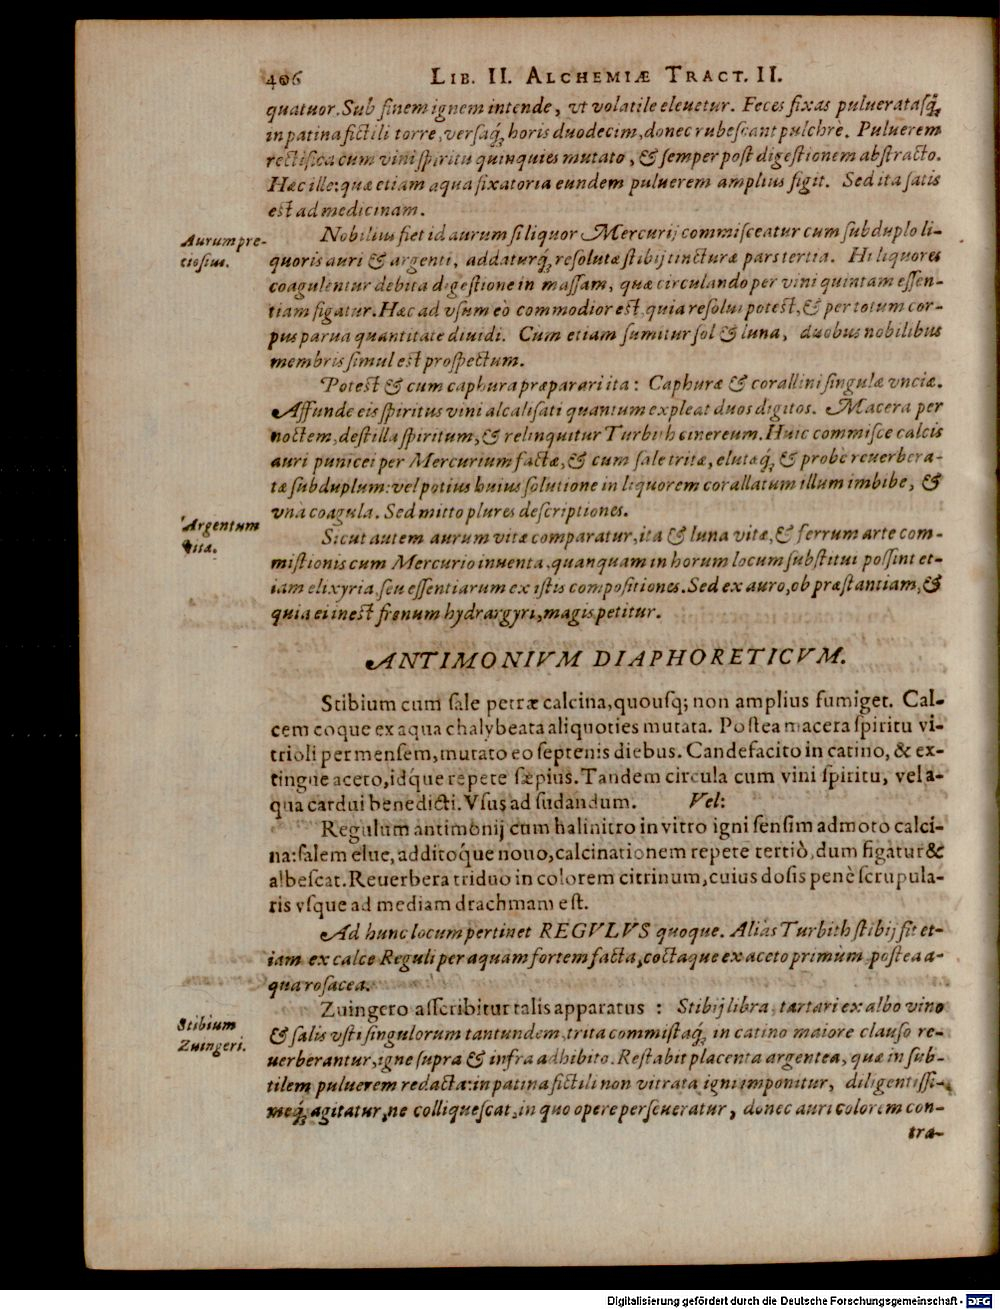 406 LIB. II. ALCHEMIÆ TRACT. II.
quatuor. Sub finem ignem intende, vt volatile eleuetur. Feces fixas puluerataſq́;
in patina fictili torre, verſaq́; horis duodecim, donec rubeſcant pulchrè. Puluerem
rectifica cum vini ſpiritu quinquies mutato, & ſemper poſt digeſtionem abſtracto.
Hæc ille: quæ etiam aqua fixatoria eundem puluerem amplius figit. Sed ita ſatis
eſt ad medicinam.
Aurum pre-
tioſius.
Nobilius fiet id aurum ſi liquor Mercurij commiſceatur cum ſubduplo li-
quoris auri & argenti, addaturq́; reſolutæ ſtibij tincturæ pars tertia. Hi liquores
coagulentur debita digeſtione in maſſam, quæ circulando per vini quintam eſſen-
tiam figatur. Hæc ad vſum eò commodior eſt, quia reſolui poteſt, & per totum cor-
pus parua quantitate diuidi. Cum etiam ſumitur ſol & luna, duobus nobilibus
membris ſimul eſt proſpectum.
Poteſt & cum caphura præparari ita: Caphuræ & corallini ſingulæ vnciæ.
Affunde eis ſpiritus vini alcaliſati quantum expleat duos digitos. Macera per
noctem, deſtilla ſpiritum, & relinquitur Turbith cinereum. Huic commiſce calcis
auri punicei per Mercurium factæ, & cum ſale tritæ, elutæq́; & probè reuerbera-
tæ ſubduplum: vel potius huius ſolutione in liquorem corallatum illum imbibe, &
vnà coagula. Sed mitto plures deſcriptiones.
Argentum
vitæ.
Sicut autem aurum vitæ comparatur, ita & luna vitæ, & ferrum arte com-
miſtionis cum Mercurio inuenta, quanquam in horum locum ſubſtitui poſſint et-
iam elixyria, ſeu eſſentiarum ex iſtis compoſitiones. Sed ex auro, ob præſtantiam, &
quia ei ineſt frenum hydrargyri, magis petitur.
ANTIMONIVM DIAPHORETICVM.
Stibium cum ſale petræ calcina, quouſq; non amplius fumiget. Cal-
cem coque ex aqua chalybeata aliquoties mutata. Poſtea macera ſpiritu vi-
trioli per menſem, mutato eo ſeptenis diebus. Candefacito in catino, & ex-
tingue aceto, idque repete ſæpius. Tandem circula cum vini ſpiritu, vel a-
qua cardui benedicti. Vſus ad ſudandum. Vel:
Regulum antimonij cum halinitro in vitro igni ſenſim admoto calci-
na: ſalem elue, additoq́ue nouo, calcinationem repete tertiò, dum figatur &
albeſcat. Reuerbera triduo in colorem citrinum, cuius doſis penè ſcrupula-
ris vſque ad mediam drachmam eſt.
Ad hunc locum pertinet REGVLVS quoque. Aliàs Turbith ſtibij fit et-
iam ex calce Reguli per aquam fortem facta, coctaque ex aceto primùm poſtea a-
qua roſacea.
Stibium
Zuingeri.
Zuingero aſſcribitur talis apparatus : Stibij libra, tartari ex albo vino
& ſalis vſti ſingulorum tantundem, trita commiſtaq́; in catino maiore clauſo re-
uerberantur, igne ſupra & infra adhibito. Reſtabit placenta argentea, quæ in ſub-
tilem puluerem redacta: in patina fictili non vitrata igni imponitur, diligentiſſi-
meq́; agitatur, ne colliqueſcat, in quo opere perſeueratur, donec auri colorem con-
tra-
Digitalisierung gefördert durch die Deutsche Forschungsgemeinschaft - DFG